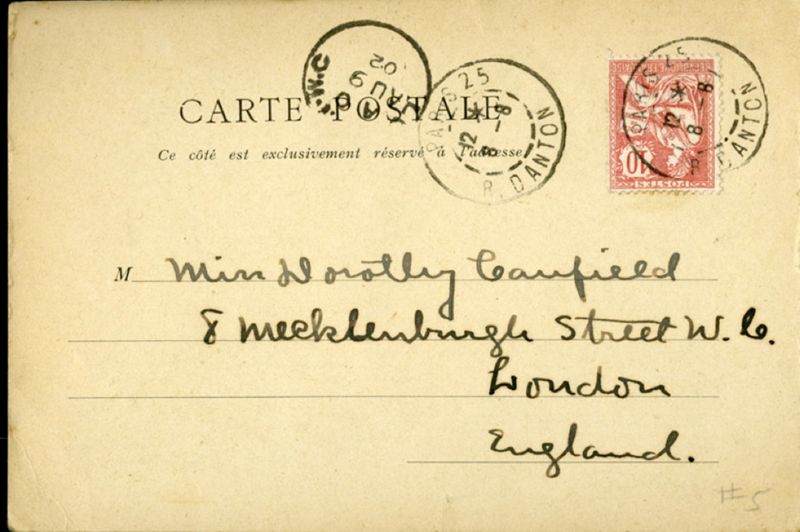 CARTE POSTALE
Ce côté est exclusivement réservé à l'adresse
W.C
AU 9
02
PARIS 25
12 *
8 -8
R. DANTON
PARIS 25
12 *
8 -8
R. DANTON
10
POSTES
M Miss Dorothy Canfield
8 Mecklenburgh Street W. C.
London
England.
#5